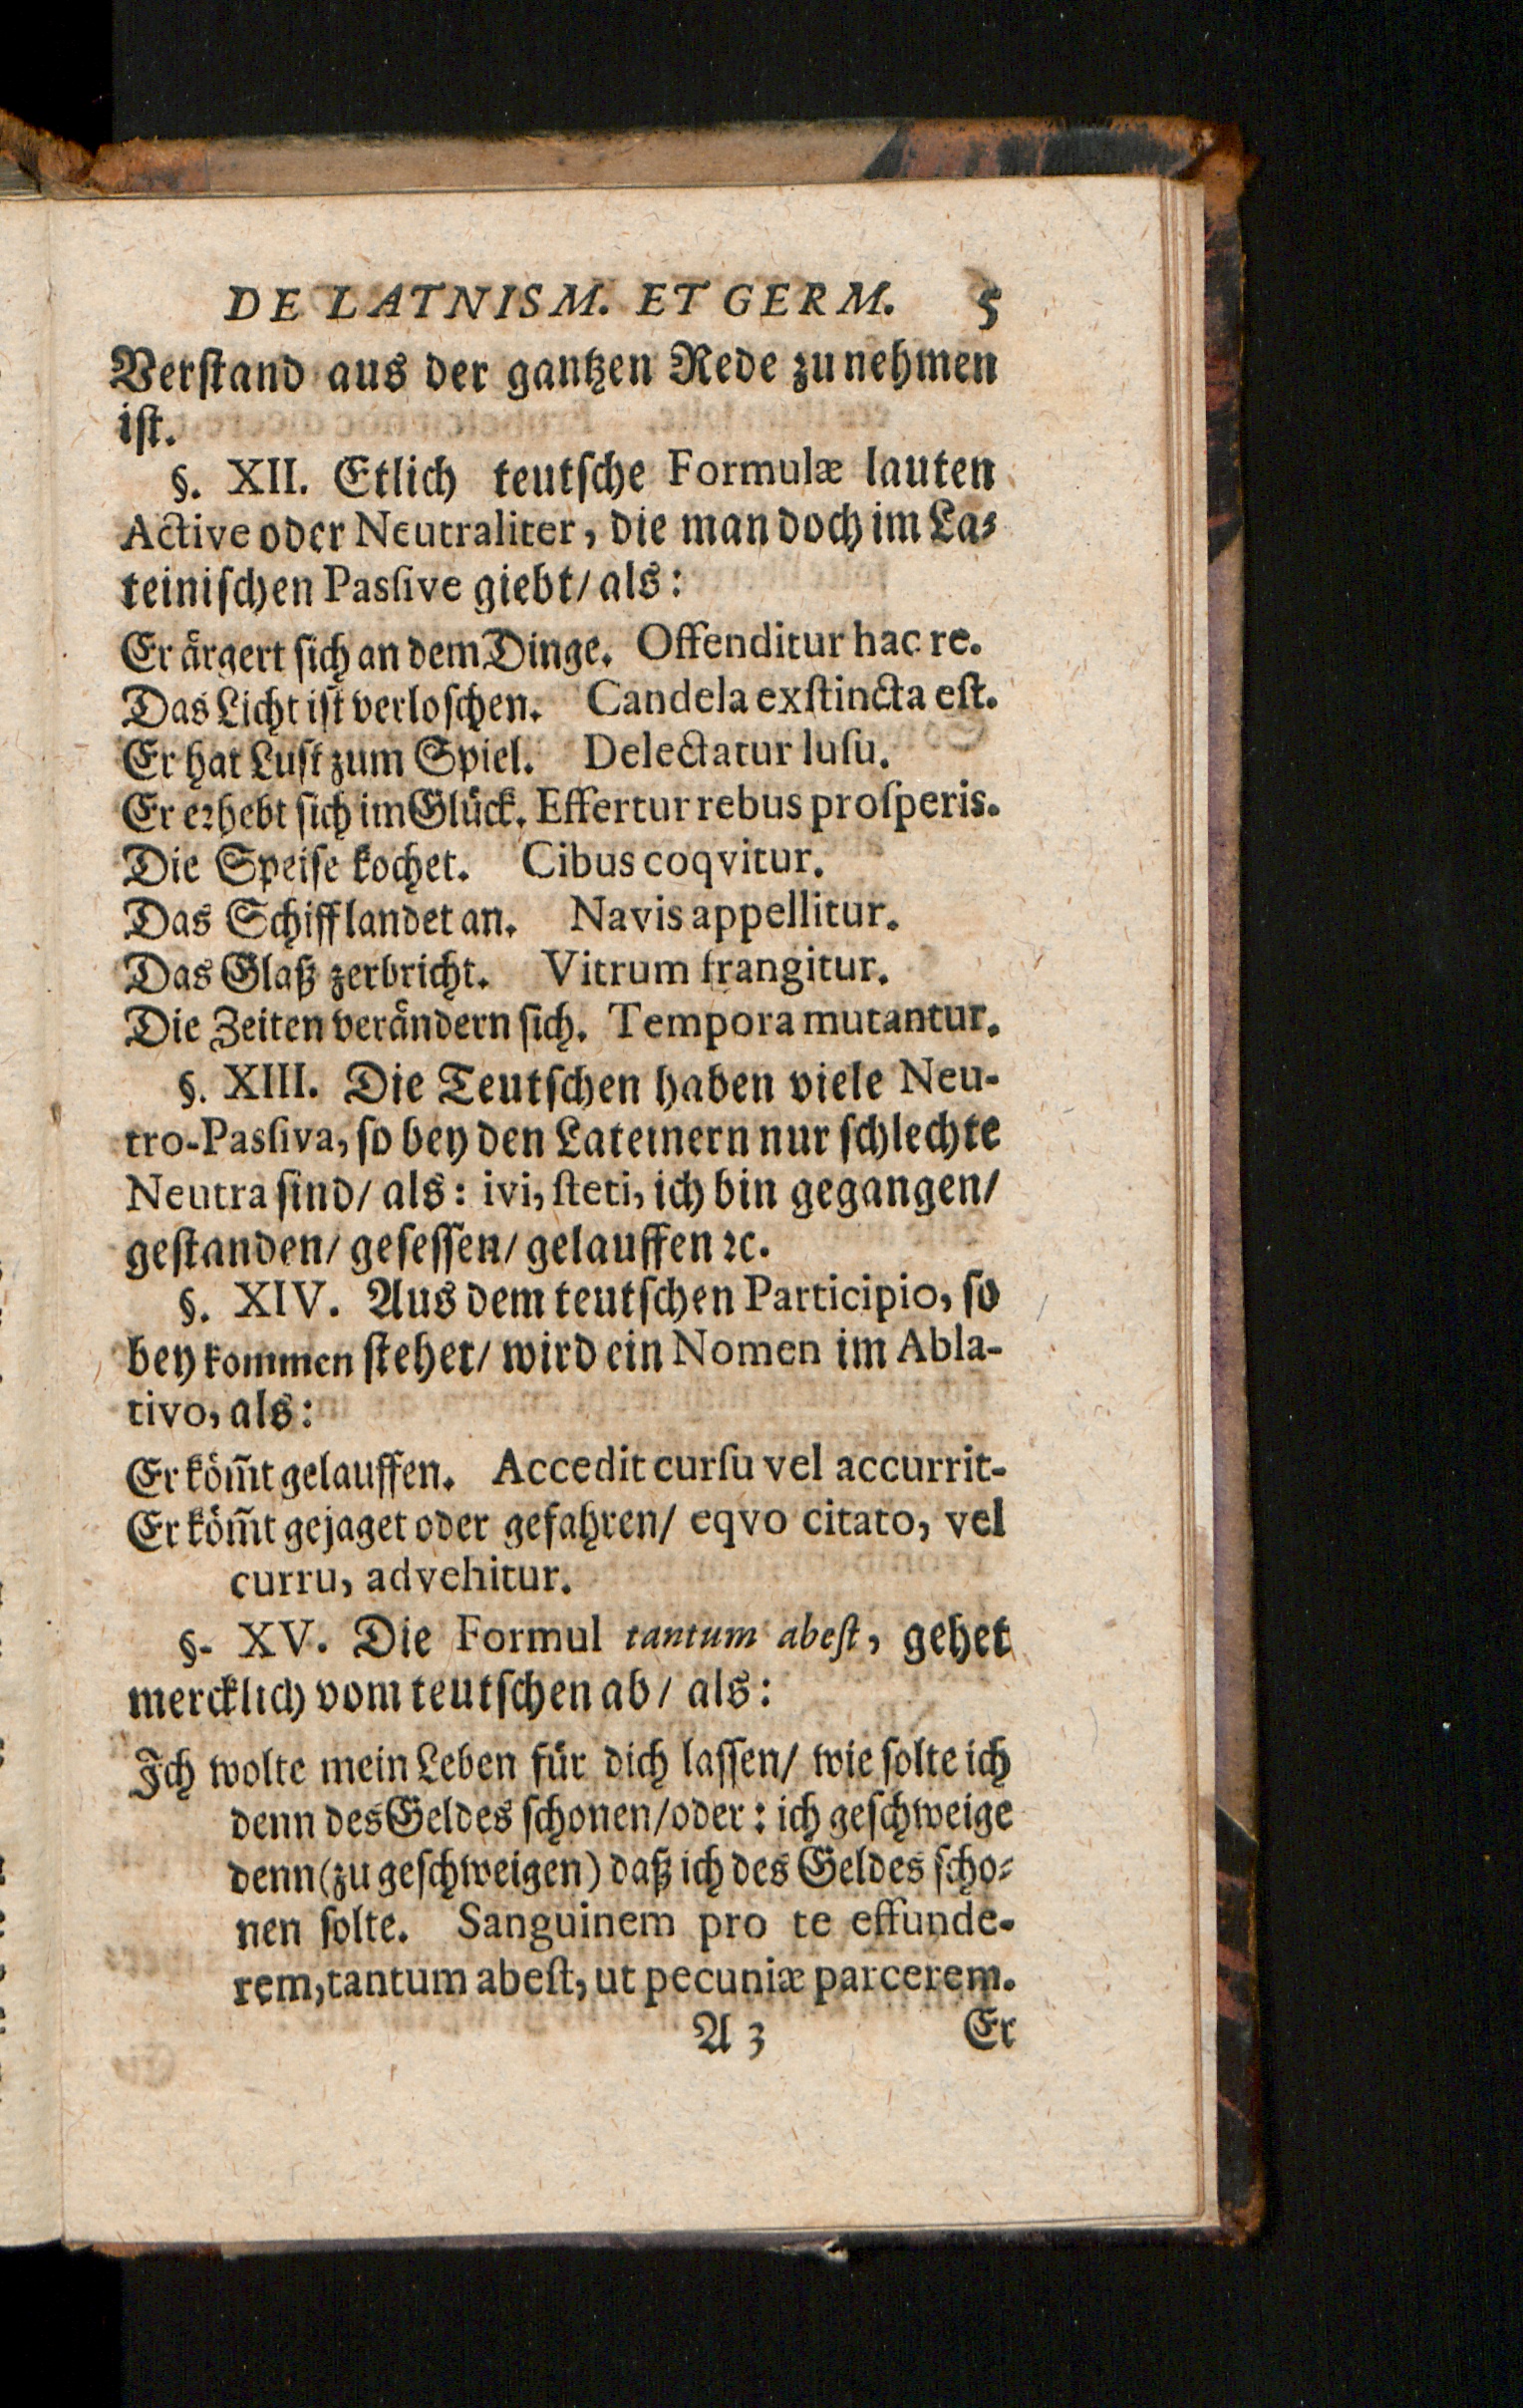 DE LATNISM. ET GERM. 5
Verſtand aus der gantzen Rede zu nehmen
iſt.
§. XII. Etlich teutſche Formulæ lauten
Active oder Neutraliter, die man doch im La⸗
teiniſchen Paſſive giebt/ als:
Er aͤrgert ſich an dem Dinge. Offenditur hac re.
Das Licht iſt verloſchen. Candela exſtincta eſt.
Er hat Luſt zum Spiel. Delectatur luſu.
Er erhebt ſich im Gluͤck. Effertur rebus proſperis.
Die Speiſe kochet. Cibus coqvitur.
Das Schiff landet an. Navis appellitur.
Das Glaß zerbricht. Vitrum frangitur.
Die Zeiten veraͤndern ſich. Tempora mutantur.
§. XIII. Die Teutſchen haben viele Neu-
tro-Paſſiva, ſo bey den Lateinern nur ſchlechte
Neutra ſind/ als: ivi, ſteti, ich bin gegangen/
geſtanden/ geſeſſen/ gelauffen ꝛc.
§. XIV. Aus dem teutſchen Participio, ſo
bey kommen ſtehet/ wird ein Nomen im Abla-
tivo, als:
Er koͤm̃t gelauffen. Accedit curſu vel accurrit-
Er koͤm̃t gejaget oder gefahren/ eqvo citato, vel
curru, advehitur.
§- XV. Die Formul tantum abeſt, gehet
mercklich vom teutſchen ab/ als:
Ich wolte mein Leben fuͤr dich laſſen/ wie ſolte ich
denn des Geldes ſchonen/oder: ich geſchweige
denn (zu geſchweigen) daß ich des Geldes ſcho⸗
nen ſolte. Sanguinem pro te effunde-
rem, tantum abeſt, ut pecuniæ parcerem.
A 3 Er